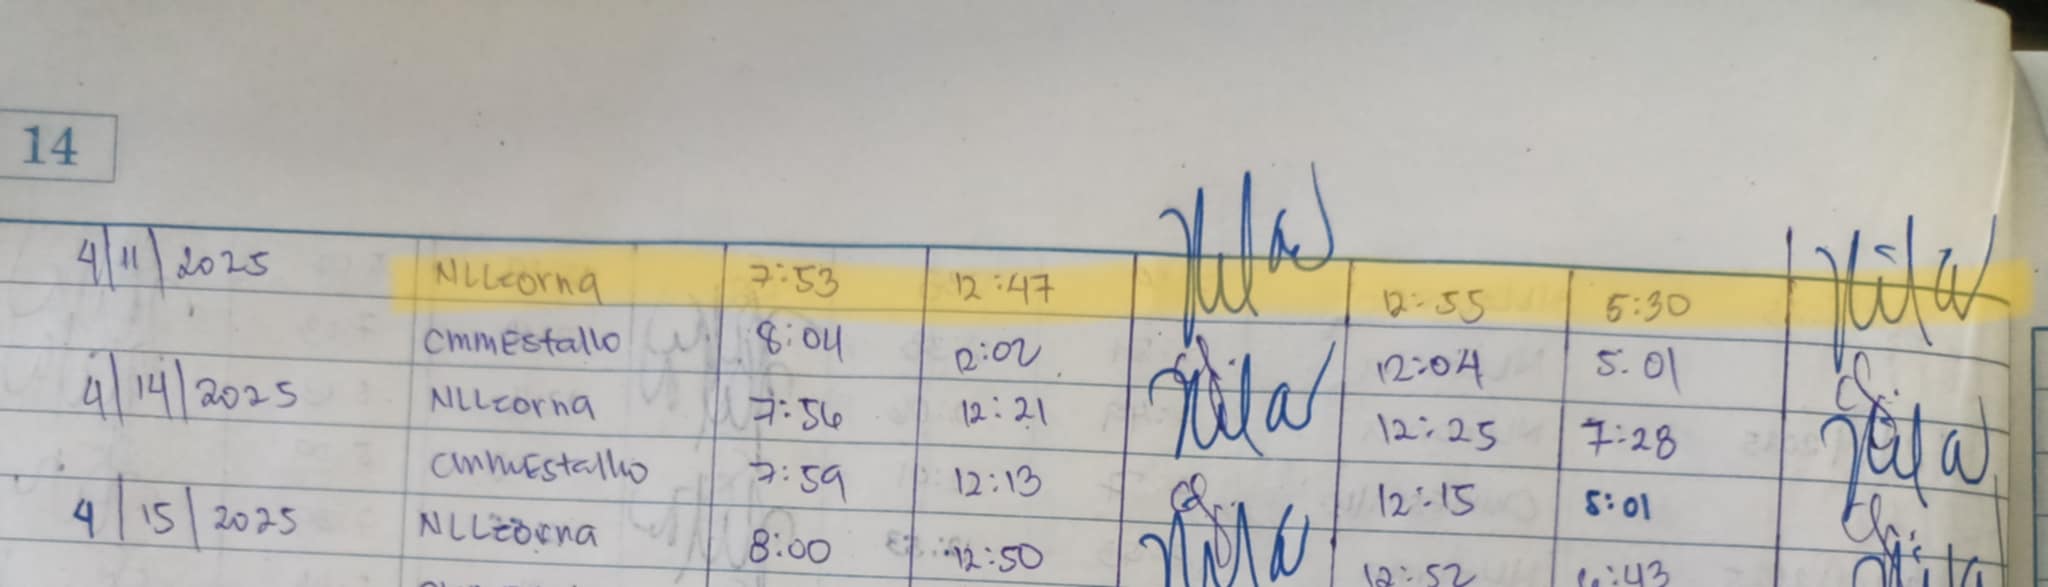 14
4/11/2025 NLLcorna 7:53 12:47 12:55 5:30
CmmEstallo 8:04 12:02 12:04 5:01
4/14/2025 NLLcorna 7:56 12:21 12:25 7:28
CmmEstallo 7:59 12:13 12:15 5:01
4/15/2025 8:00 12:50 12:52